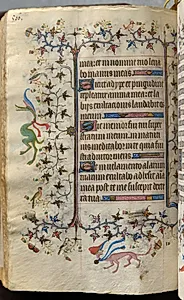 mea et in nomine tuo leua
bo manus meas
Sicut adipe et pinguedine
repleatur anima mea et la
biis exultationis laudabit os
meum
Si memor fui tui super
stratum meum in matutinis
meditabor in te quia fui
sti adiutor meus
Et in uelamento alarum
tuarum exultabo adhesit ani
ma mea post te me suscepit dex
tera tua